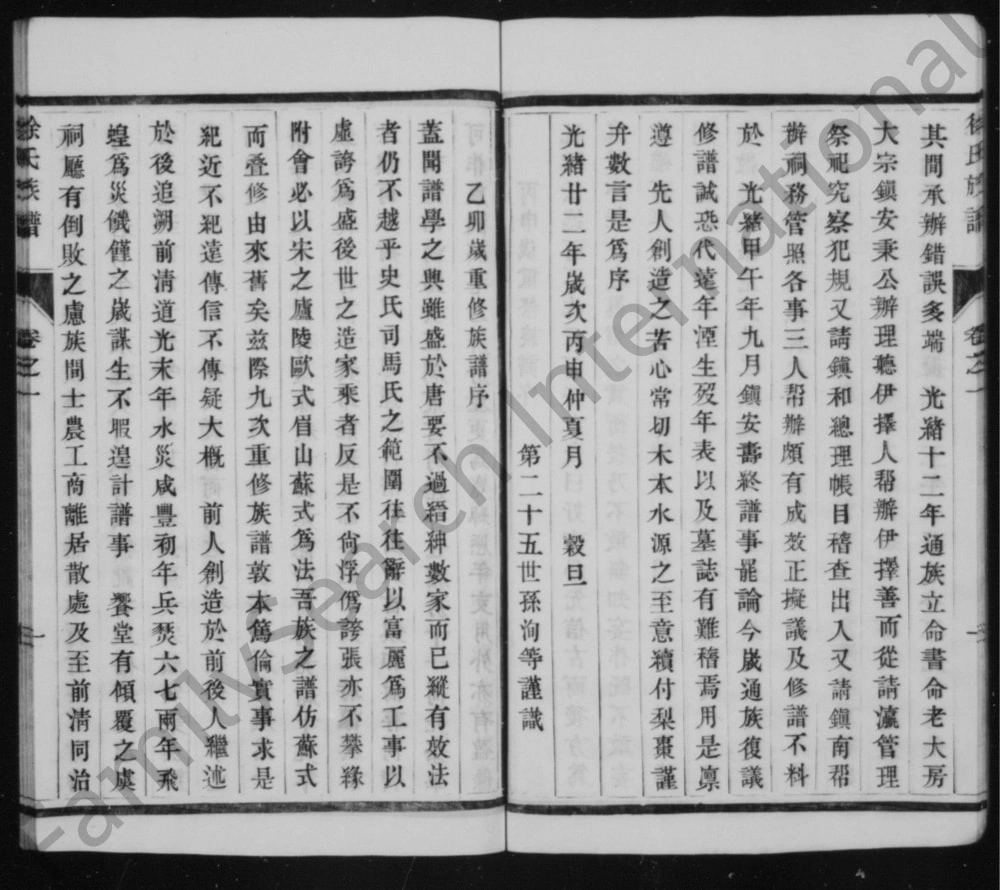 徐氏族譜
卷之一
其間承辦錯誤多端　光緒十二年通族立命書命老大房
大宗鎭安秉公辦理聽伊擇人帮辦伊擇善而從請瀛管理
祭祀究察犯規又請鎭和總理帳目稽查出入又請鎭南帮
辦祠務管照各事三人帮辦頗有成效正擬議及修譜不料
於　光緒甲午年九月鎭安壽終譜事罷論今歲通族復議
修譜誠恐代遠年湮生歿年表以及墓誌有難稽焉用是凛
遵　先人創造之苦心常切木本水源之至意續付梨棗謹
弁數言是爲序
光緒廿二年歲次丙申仲夏月　穀旦
第二十五世孫洵等謹識
乙卯歲重修族譜序
蓋聞譜學之興雖盛於唐要不過縉紳數家而已縱有效法
者仍不越乎史氏司馬氏之範圍往往辭以富麗爲工事以
虛誇爲盛後世之造家乘者反是不尙浮僞誇張亦不攀緣
附會必以宋之廬陵歐式眉山蘇式爲法吾族之譜仿蘇式
而叠修由來舊矣玆際九次重修族譜敦本篤倫實事求是
紀近不紀遠傳信不傳疑大槪前人創造於前後人繼述
於後追溯前淸道光末年水災咸豐初年兵燹六七兩年飛
蝗爲災饑饉之歲謀生不暇遑計譜事　饗堂有傾覆之虞
祠廳有倒敗之慮族間士農工商離居散處及至前淸同治
徐氏族譜
卷之一
FamilySearch International